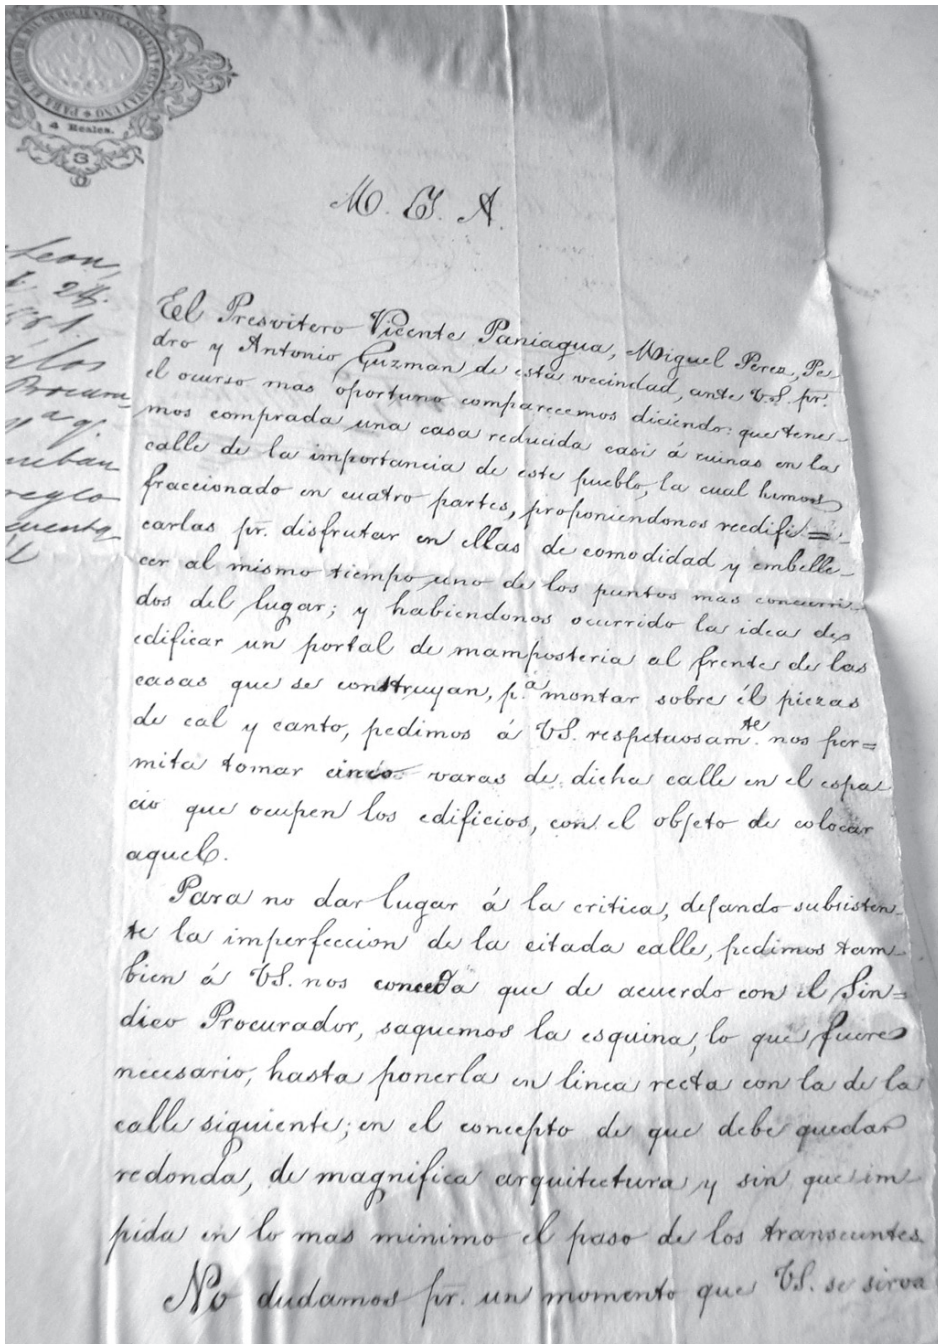 PARA EL BIENIO DE MIL OCHOCIENTOS SESENTA Y SESENTA Y UNO
4 Reales.
S
M. Y. A.
Leon,
24.
á los
Procura
a q.
rueban
reglo
cuenta
El Presvitero Vicente Paniagua, Miguel Perez, Pe
dro y Antonio Guzman de esta vecindad, ante VS. pr.
el ocurso mas oportuno comparecemos diciendo: que tene-
mos comprada una casa reducida casi á ruinas en la
calle de la importancia de este pueblo, la cual hemos
fraccionado en cuatro partes, proponiendonos reedifi=
carlas pr. disfrutar en ellas de comodidad y embelle-
cer al mismo tiempo uno de los puntos mas concurri-
dos del lugar; y habiendonos ocurrido la idea de
edificar un portal de mamposteria al frente de las
casas que se construyan, p.ª montar sobre él piezas
de cal y canto, pedimos á VS. respetuosam.te nos per=
mita tomar cinco varas de dicha calle en el espa
cio que ocupen los edificios, con el objeto de colocar
aquel.
Para no dar lugar á la critica, dejando subsisten-
te la imperfeccion de la citada calle, pedimos tam-
bien á VS. nos conceda que de acuerdo con el Sin=
dico Procurador, saquemos la esquina, lo que fuere
necesario, hasta ponerla en linea recta con la de la
calle siguiente; en el concepto de que debe quedar
redonda, de magnifica arquitectura y sin que im-
pida en lo mas minimo el paso de los transeuntes.
No dudamos pr. un momento que VS. se sirva